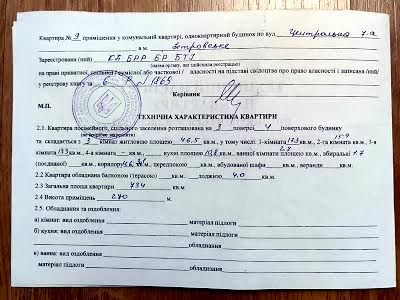 Квартира № 9 приміщення у комунальній квартирі, одноквартирний будинок по вул. Центральна 7-а
в м. Петровське
Зареєстрований (ний) КП БРР БР БТІ
(назва органу, що здійснив реєстрацію)
на праві приватної, спільної / сумісної або часткової / власності на підставі свідоцтва про право власності і записана /ний/
у реєстрову книгу за
Керівник
М.П.
ТЕХНІЧНА ХАРАКТЕРИСТИКА КВАРТИРИ
2.1. Квартира посімейного, спільного заселення розташована на 3 поверсі 4 поверхового будинку
(не потрібне закреслити)
та складається з 3 кімнат житловою площею 46.5 кв.м., у тому числі: 1-кімната 17.3 кв.м., 2-га кімната 15.9 кв.м., 3-я
кімната 13.3 кв.м., 4-а кімната — кв.м., кухні площею 10.8 кв.м., ванної кімнати 2.7 кв.м., вбиральні 1.7
(поєднаної) кв.м., коридор кв.м., передпокою кв.м., вбудованої шафи кв.м., веранди кв.м.
2.2. Квартира обладнана балконом (терасою) кв.м., лоджією 4.0 кв.м.
2.3. Загальна площа квартири 73.4 кв.м.
2.4. Висота приміщень 270 м.
2.5. Обладнання та оздоблення:
а) кімнат: вид оздоблення матеріал підлоги
б) кухні: вид оздоблення матеріал підлоги
обладнання
в) ванна: вид оздоблення обладнання
матеріал підлоги